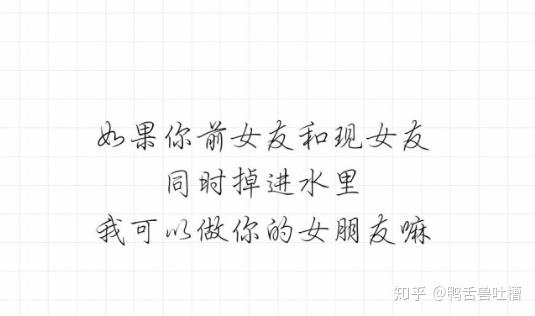 如果你前女友和现女友
同时掉进水里
我可以做你的女朋友嘛
知乎 @鸭舌兽吐槽